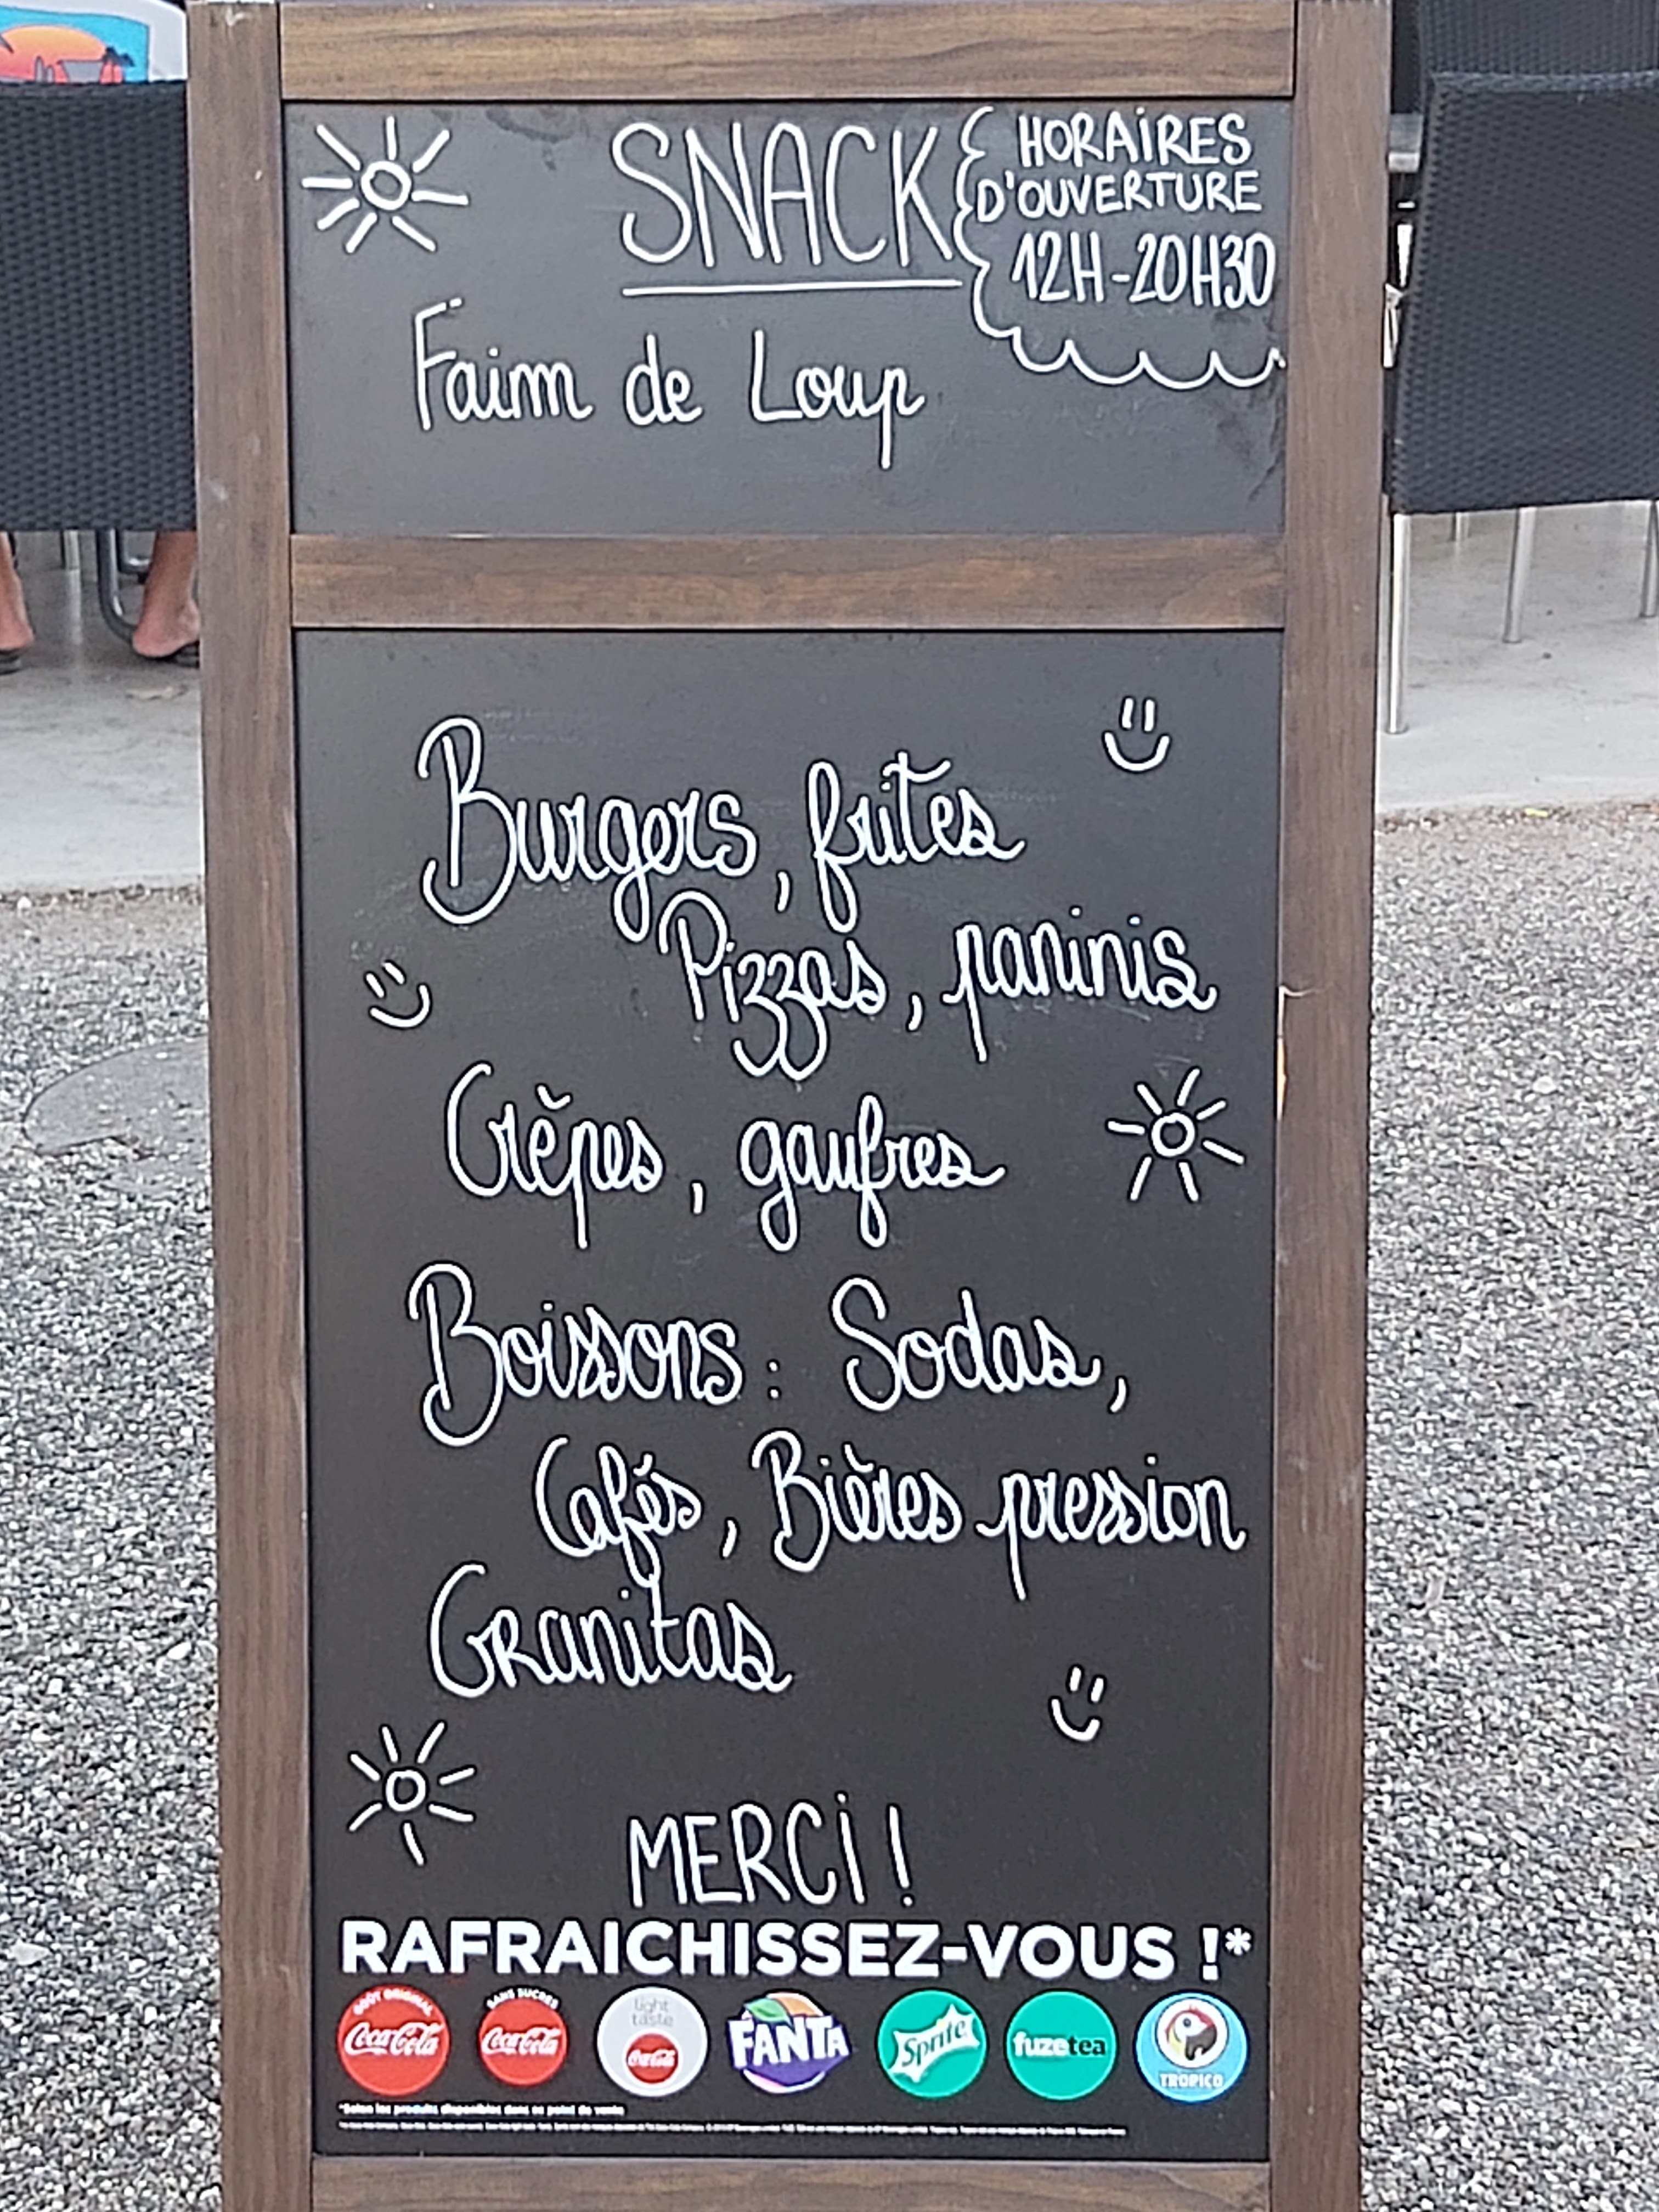 SNACK
HORAIRES
D'OUVERTURE
12H-20H30
Faim de Loup
Burgers, frites
Pizzas, paninis
Crêpes, gaufres
Boissons : Sodas,
Cafés, Bières pression
Granitas
MERCI !
RAFRAICHISSEZ-VOUS !*
GOÛT ORIGINAL
Coca-Cola
SANS SUCRES
Coca-Cola
light
taste
Coca-Cola
FANTA
Sprite
fuzetea
TROPICO
*Selon les produits disponibles dans ce point de vente